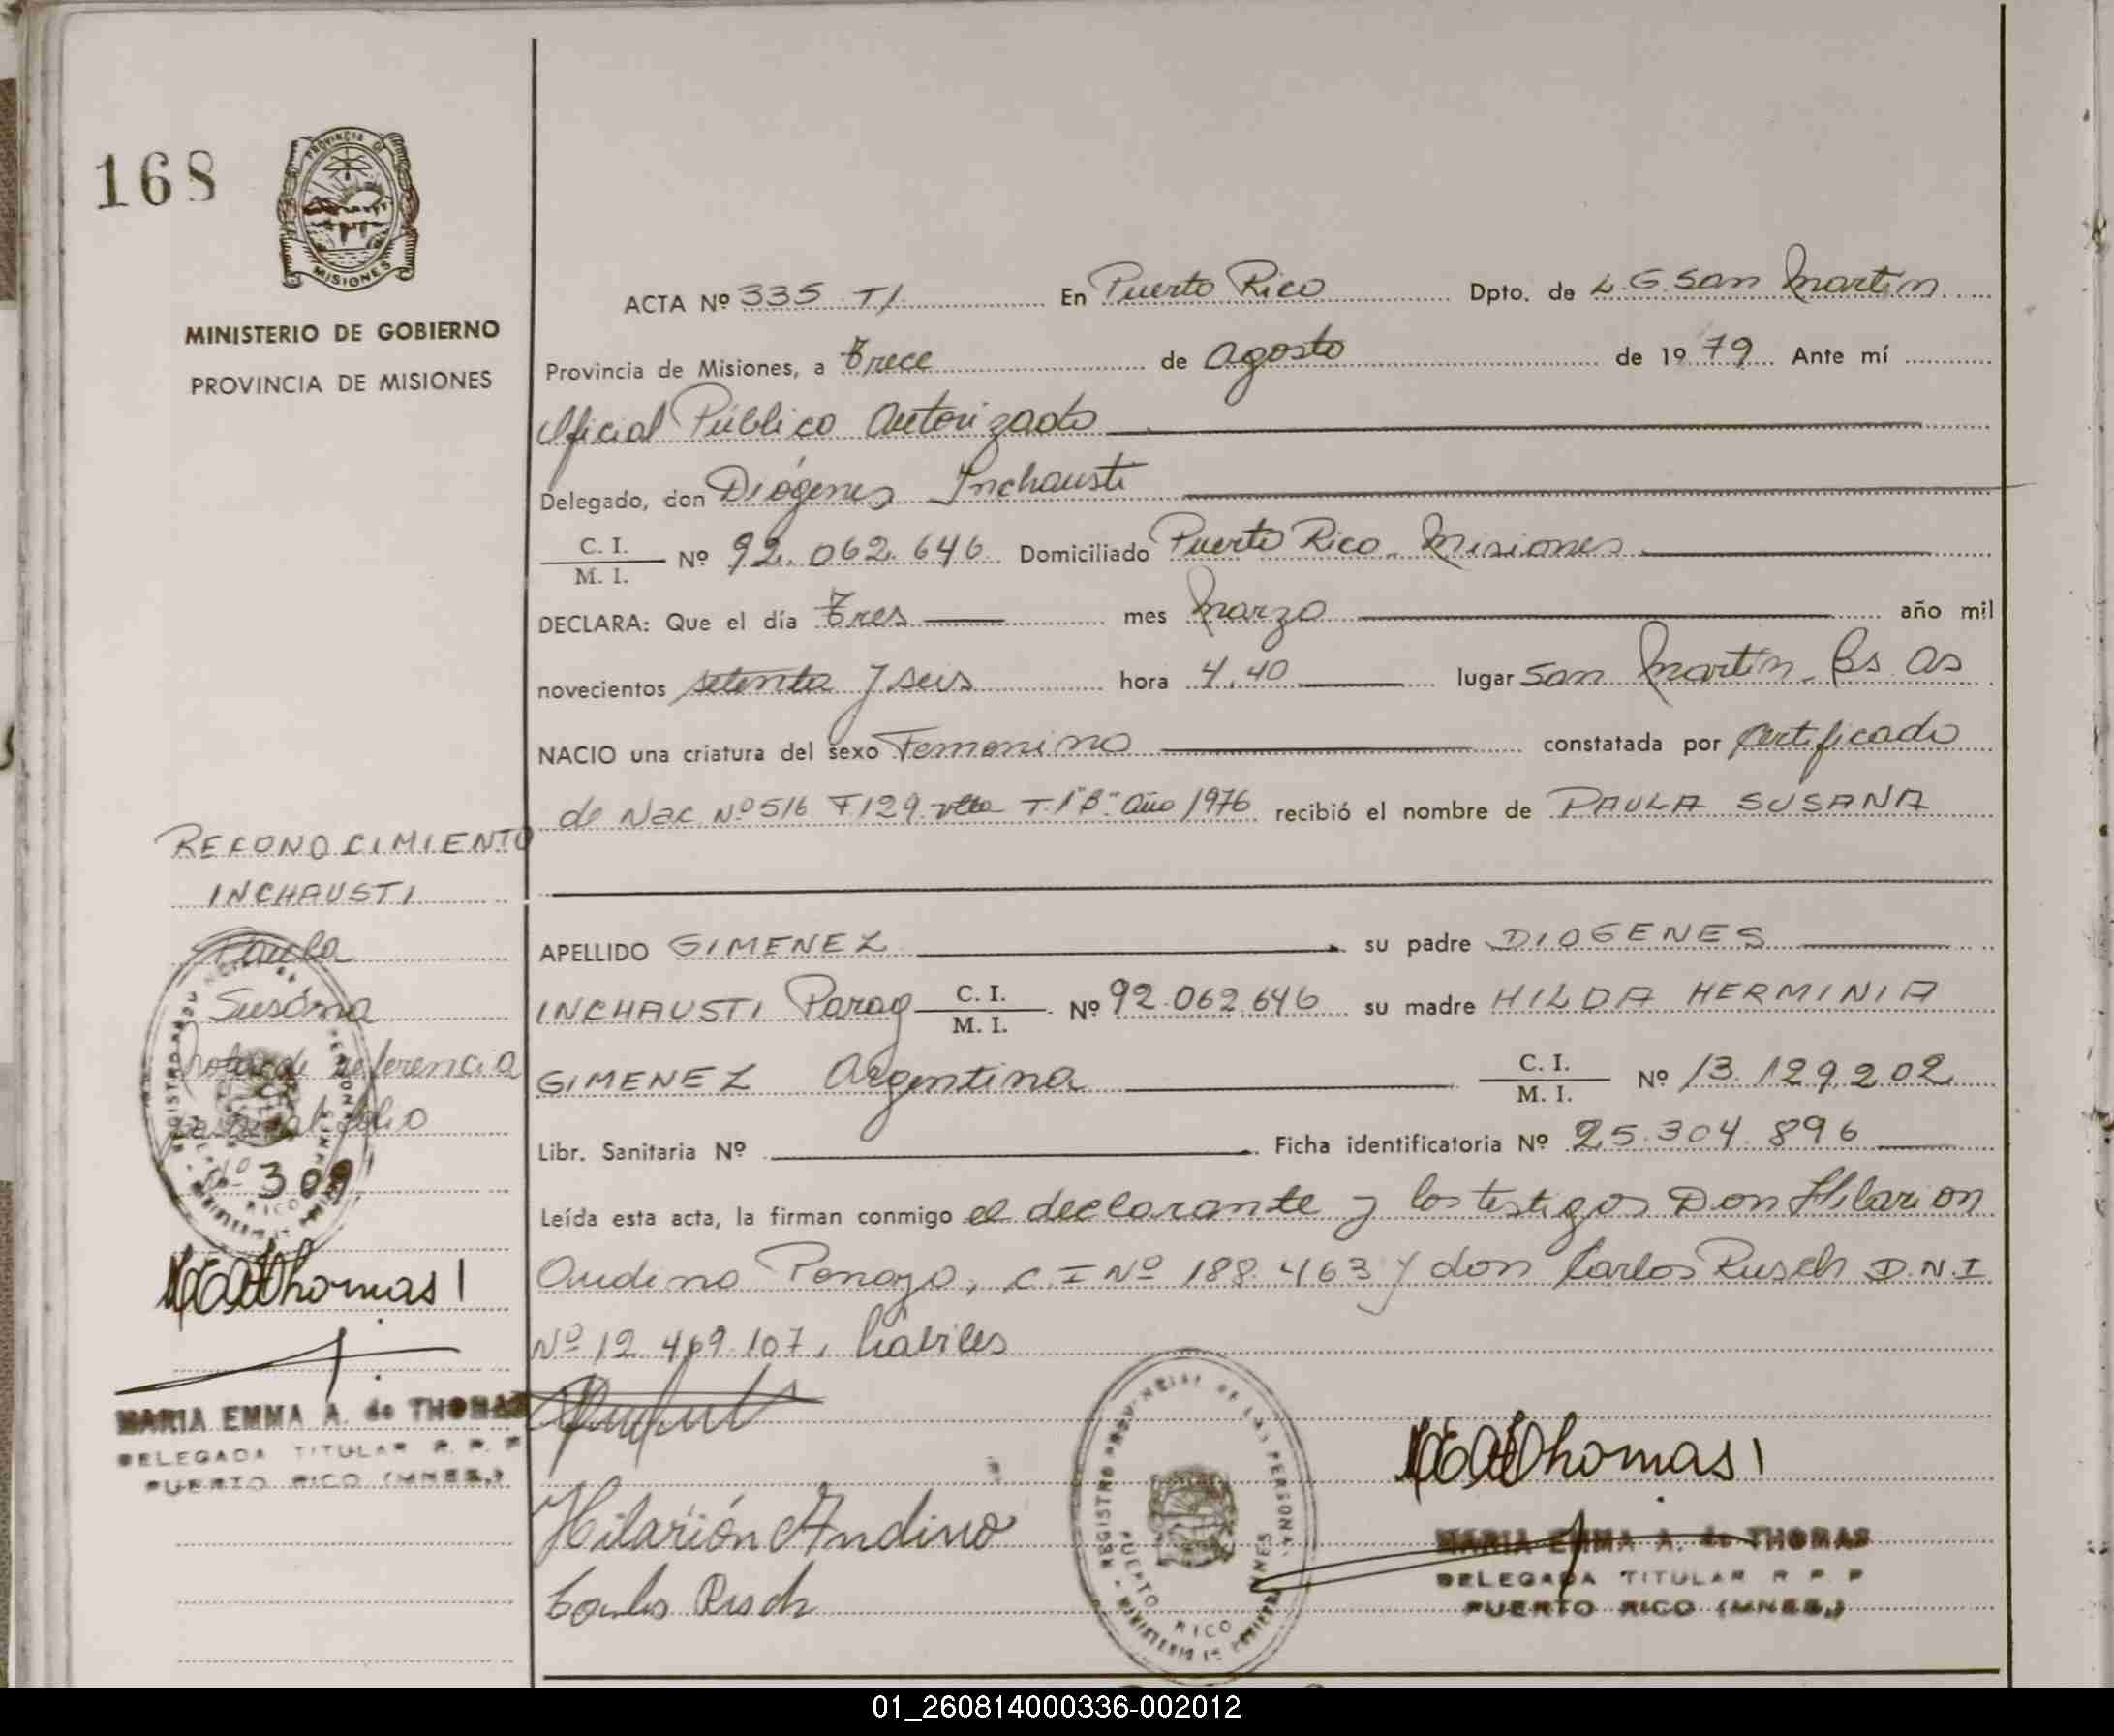 168
PROVINCIA DE
MISIONES
MINISTERIO DE GOBIERNO
PROVINCIA DE MISIONES
ACTA Nº 335 T I En Puerto Rico Dpto. de L.G. San Martin
Provincia de Misiones, a trece de agosto de 1979 Ante mí
Oficial Público Autorizado
Delegado, don Diógenes Inchausti
C. I. / M. I. Nº 92.062.646 Domiciliado Puerto Rico - Misiones
DECLARA: Que el día tres mes marzo año mil
novecientos setenta y seis hora 4.40 lugar San Martin - Bs As
NACIO una criatura del sexo Femenino constatada por certificado
de Nac Nº 516 F 129 vlta T. 1º "B" año 1976 recibió el nombre de PAULA SUSANA
RECONOCIMIENTO
INCHAUSTI
Paula
Susana
nota de referencia
folio
Nº 309
MEAdThomas
MARIA EMMA A. de THOMAS
DELEGADA TITULAR R. P. P
PUERTO RICO (MNES.)
APELLIDO GIMENEZ su padre DIOGENES
INCHAUSTI Parag C. I. / M. I. Nº 92.062.646 su madre HILDA HERMINIA
GIMENEZ Argentina C. I. / M. I. Nº 13.129.202
Libr. Sanitaria Nº Ficha identificatoria Nº 25.304.896
Leída esta acta, la firman conmigo el declarante y los testigos Don Hilarion
Andino Penayo, C.I Nº 188.463 y don Carlos Rusch D.N.I
Nº 12.469.107, hábiles
Hilarión Andino
Carlos Rusch
REGISTRO PROVINCIAL DE LAS PERSONAS
PUERTO RICO
MEAdThomas
MARIA EMMA A. de THOMAS
DELEGADA TITULAR R P P
PUERTO RICO (MNES.)
01_260814000336-002012